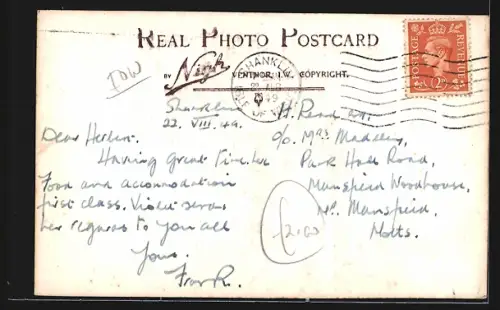 REAL PHOTO POSTCARD
IOW
BY Nigh VENTNOR, I.W. COPYRIGHT.
SHANKLIN
ISLE OF WIGHT
POSTAGE REVENUE
2½D
Shanklin
22. VIII. 49.
Dear Herbert.
Having Great Time.
Food and accomodation
first class. Violet sends
her regards to you all
Yours.
Frank.
H. Read
c/o. Mrs Maddley,
Park Hall Road,
Mansfield Woodhouse,
Nr. Mansfield,
Notts.
2.00